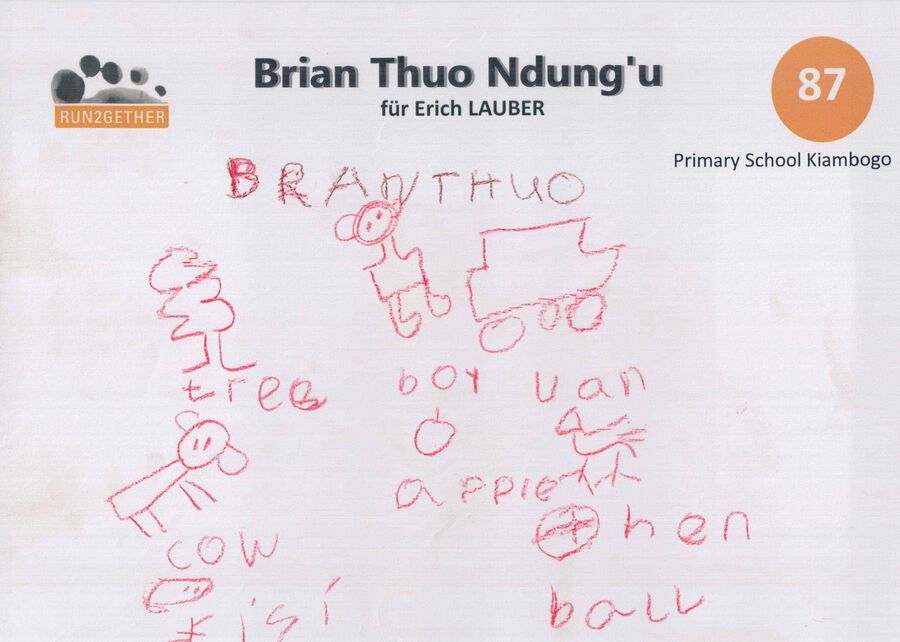 RUN2GETHER
Brian Thuo Ndung'u
für Erich LAUBER
87
Primary School Kiambogo
BRAN THUO
tree boy van
apple
hen
cow
ball